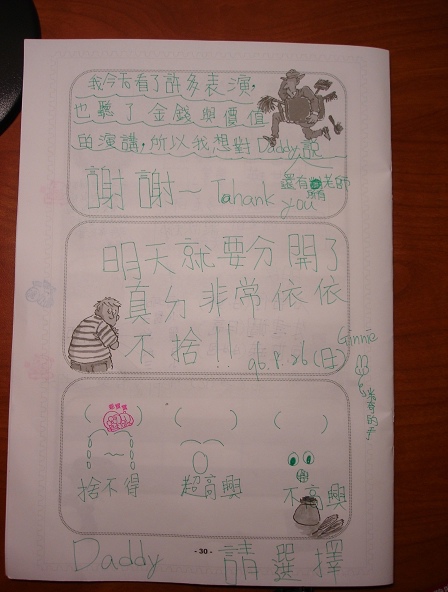 我今天看了許多表演,
也聽了金錢與價值
的演講,所以我想對Daddy說
還有所有老師
謝謝～Thank you
明天就要分開了
真ㄉ非常依依
不捨!!
96.8.26(日)
Ginnie
米奇的手
( ) ( ) ( )
捨不得 超高興 不高興
- 30 -
Daddy 請選擇